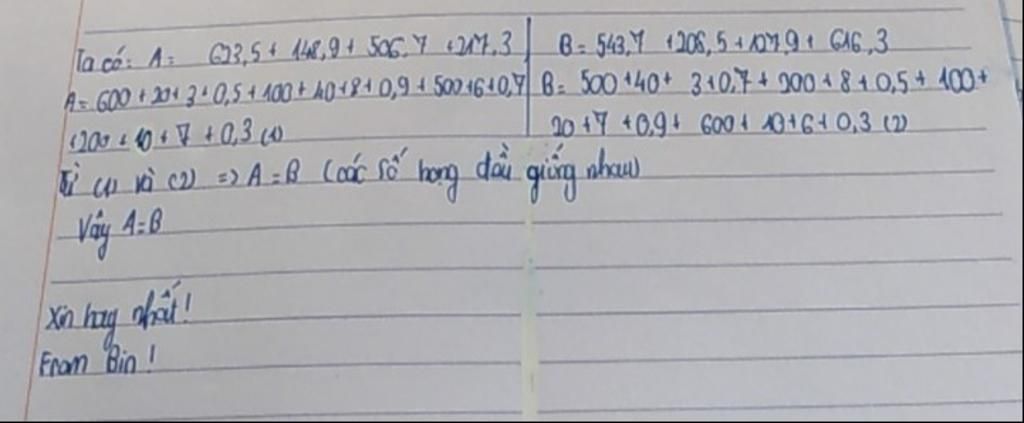 Ta có: A = 623,5 + 148,9 + 506,7 + 217,3
A = 600 + 20 + 3 + 0,5 + 100 + 40 + 8 + 0,9 + 500 + 6 + 0,7
+ 200 + 10 + 7 + 0,3 (1)
B = 543,7 + 208,5 + 127,9 + 616,3
B = 500 + 40 + 3 + 0,7 + 200 + 8 + 0,5 + 100 +
20 + 7 + 0,9 + 600 + 10 + 6 + 0,3 (2)
Từ (1) và (2) => A = B (các số hạng đều giống nhau)
Vậy A = B
Xin hay nhất!
From Bin!